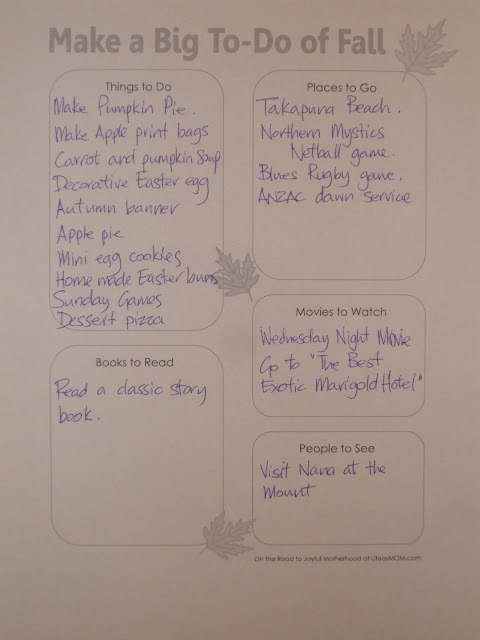 Make a Big To-Do of Fall
Things to Do
Make Pumpkin Pie.
Make Apple print bags
Carrot and pumpkin Soup
Decorative Easter egg
Autumn banner
Apple pie
Mini egg cookies
Home made Easter buns
Sunday Games
Dessert pizza
Books to Read
Read a classic story
book.
Places to Go
Takapuna Beach.
Northern Mystics
Netball game.
Blues Rugby game.
ANZAC dawn service
Movies to Watch
Wednesday Night Movie
Go to "The Best
Exotic Marigold Hotel"
People to See
Visit Nana at the
Mount
On the Road to Joyful Motherhood at LifeasMOM.com